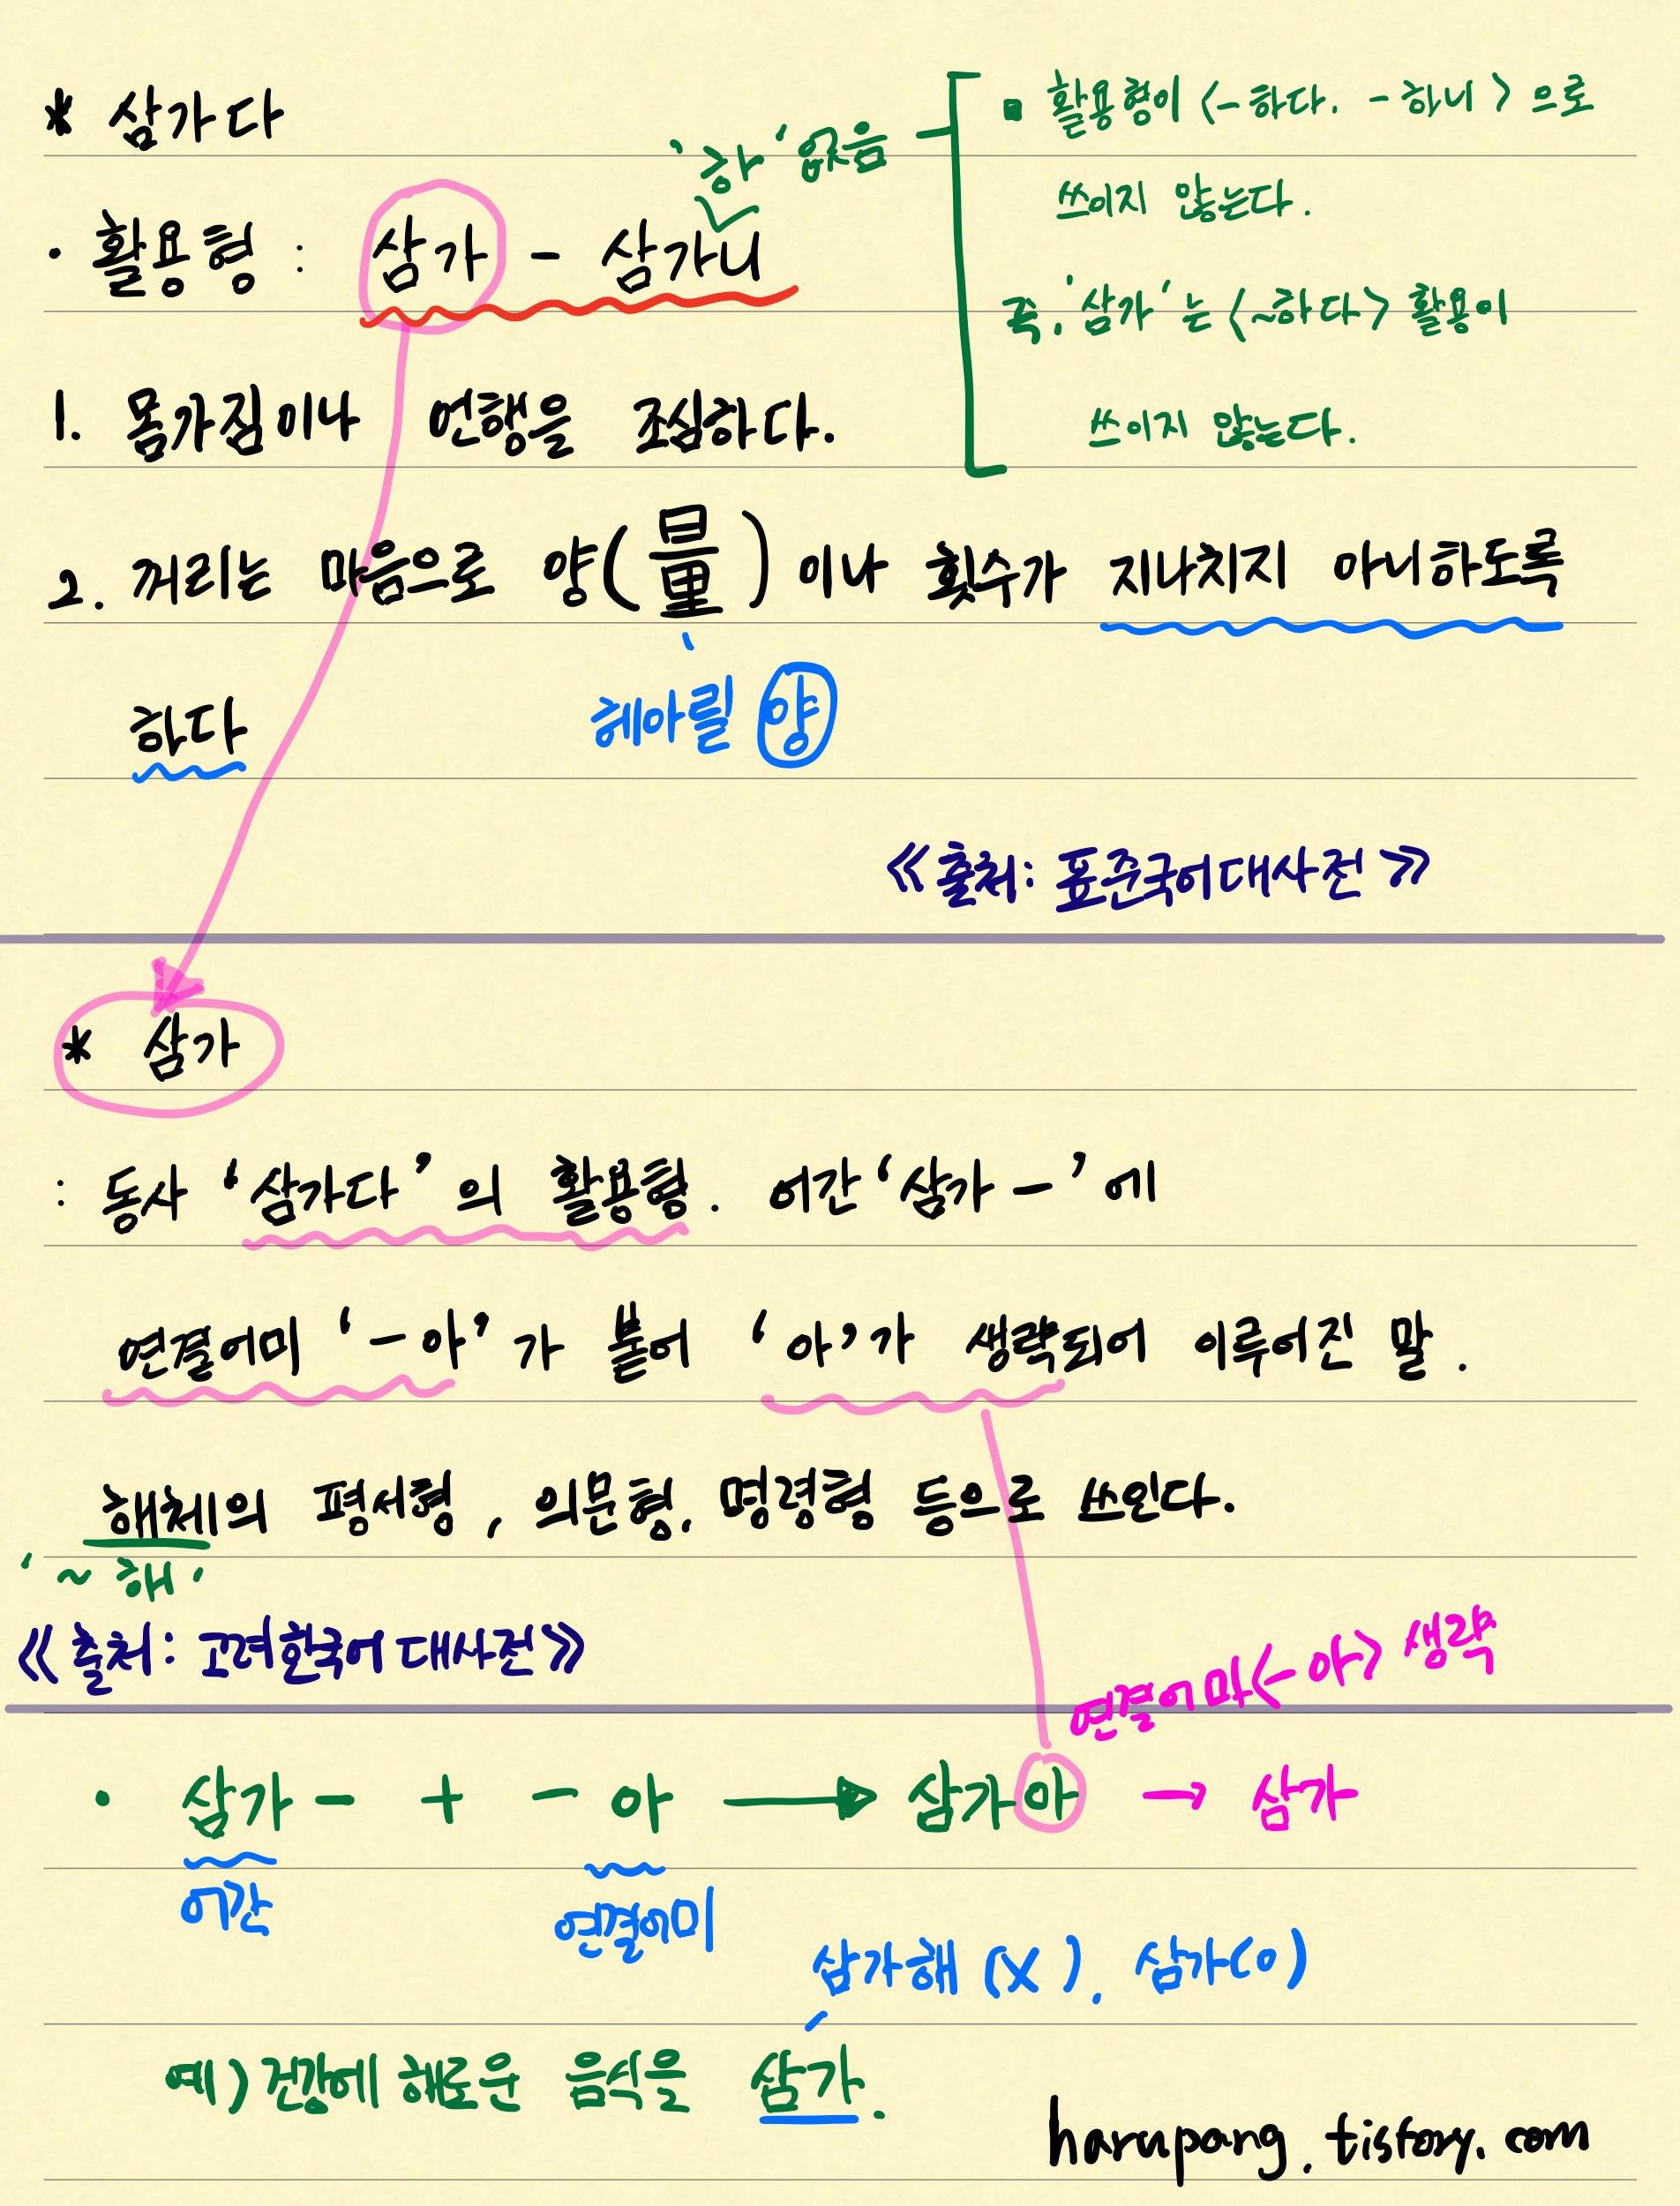 * 삼가다
'하' 없음
· 활용형 : 삼가 - 삼가니
▪ 활용형이 <-하다. -하니> 으로
쓰이지 않는다.
즉, '삼가'는 <~하다> 활용이
쓰이지 않는다.
1. 몸가짐이나 언행을 조심하다.
2. 꺼리는 마음으로 양(量)이나 횟수가 지나치지 아니하도록
하다
헤아릴 양
《출처: 표준국어대사전》
* 삼가
: 동사 '삼가다'의 활용형. 어간 '삼가-'에
연결어미 '-아'가 붙어 '아'가 생략되어 이루어진 말.
해체의 평서형, 의문형, 명령형 등으로 쓰인다.
'~해'
《출처: 고려한국어대사전》
연결어미<-아> 생략
· 삼가- + -아 → 삼가아 → 삼가
어간
연결어미
삼가해 (X), 삼가(o)
예) 건강에 해로운 음식을 삼가.
harupang.tistory.com